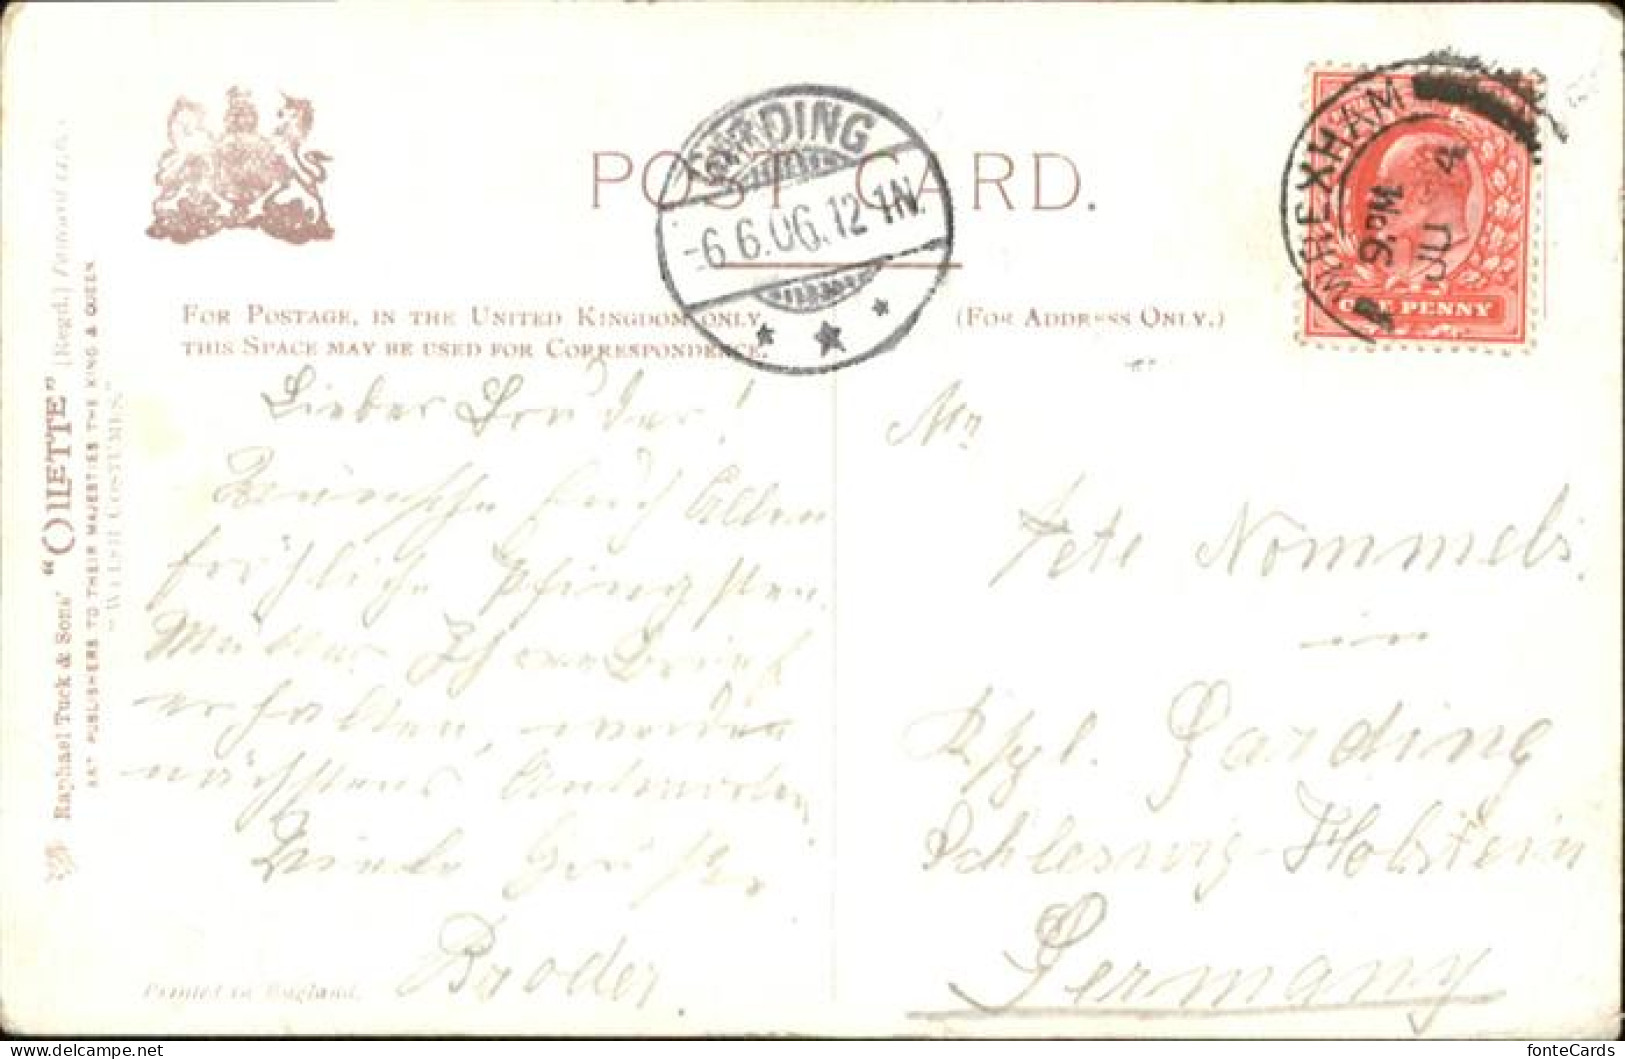 POST CARD.
GARDING
-6 6.06.12-1N.
WREXHAM
9.PM
JU 4
ONE PENNY
FOR POSTAGE, IN THE UNITED KINGDOM ONLY,
THIS SPACE MAY BE USED FOR CORRESPONDENCE.
(FOR ADDRESS ONLY.)
Raphael Tuck & Sons' "OILETTE" [Regd.]
ART PUBLISHERS TO THEIR MAJESTIES THE KING & QUEEN.
"WELSH COSTUMES"
Lieber Bruder!
Wünsche Euch Allen
fröhliche Pfingsten.
Mutter Brief
erhalten, werden
nächstens Antworten
Viele Grüße
Broder.
Printed in England.
Mr
Pete Nommels
in
Kspl. Garding
Schleswig-Holstein
Germany
fonteCards